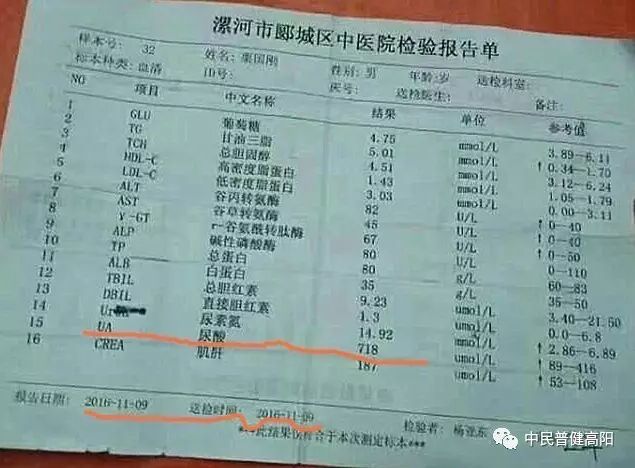 漯河市郾城区中医院检验报告单
样本号: 32 姓名: 栗国刚 性别: 男 年龄: 岁 送检科室:
标本种类: 血清 ID号: 床号: 送检医生: 备注:
NO 项目 中文名称 结果 单位 参考值
1 GLU 葡萄糖 4.75 mmol/L 3.89-6.11
2 TG 甘油三脂 5.01 mmol/L ↑ 0.34-1.70
3 TCH 总胆固醇 4.51 mmol/L 3.12-6.24
4 HDL-C 高密度脂蛋白 1.43 mmol/L 1.05-1.79
5 LDL-C 低密度脂蛋白 3.03 mmol/L 0.00-3.11
6 ALT 谷丙转氨酶 82 U/L ↑ 0-40
7 AST 谷草转氨酶 45 U/L ↑ 0-40
8 γ-GT r-谷氨酰转肽酶 67 U/L ↑ 0-50
9 ALP 碱性磷酸酶 80 U/L 0-110
10 TP 总蛋白 80 g/L 60-83
11 ALB 白蛋白 35 g/L 35-50
12 TBIL 总胆红素 9.23 umol/L 3.40-21.50
13 DBIL 直接胆红素 1.3 umol/L 0.0-6.8
14 尿素氮 14.92 mmol/L ↑ 2.86-6.89
15 UA 尿酸 718 umol/L ↑ 89-416
16 CREA 肌酐 187 umol/L ↑ 53-108
报告日期: 2016-11-09 送检时间: 2016-11-09 检验者: 杨亚东
***此结果仅符合于本次测定标本***
中民普健高阳